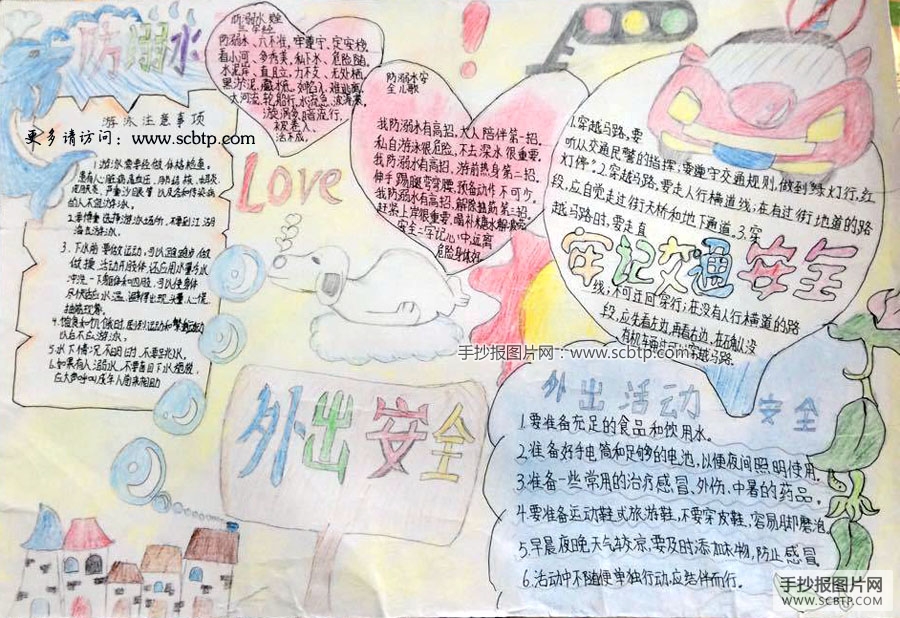 防溺水
游泳注意事项
更多请访问：www.scbtp.com
1.游泳需要经做体格检查，
患有心脏病高血压，肺结核、中耳炎
皮肤炎、严重沙眼等以及各种传染病
的人不宜游泳。
2.要慎重选择游泳场所，不要到江河
湖海去游泳。
3.下水前要做运动，可以跑跑步、做
做操，活动开肢体，还应用少量冷水
冲洗一下躯体和四肢，可以使身体
尽快适应水温，避得出现头晕、心慌、
抽筋现象。
以后不应游泳。
5.水下情况不明时，不要跳水。
6.如果有人溺水，不要盲目下水施救，
应大声呼叫成年人前来相助
防溺水难
三字经
防溺水、六不准，牢遵守、定安检，
着小河、多秀美，私下水、危险随。
漩涡多，暗流行，
法不成，
防溺水安
全儿歌
我防溺水有高招，大人陪伴第一招。
私自游泳很危险，不去深水很重要。
我防溺水有高招，游前热身第二招。
伸手踢腿弯弯腰，预备动作不可少。
我防溺水有高招，解除抽筋第三招。
赶紧上岸很重要，喝补糖水解疲劳
安全三牢记心中，远离
危险身体好
Love
1.穿越马路，要
听从交通民警的指挥；要遵守交通规则，做到“绿灯行，红
灯停”。2.穿越马路，要走人行横道线；在有过街地道的路
段，应自觉走过街天桥和地下通道。3.穿
越马路时，要走直
牢记交通安全
线，不可迂回穿行；在没有人行横道的路
段，应先看左边，再看右边，在确认没
有机车通过时才可以穿越马路。
手抄报图片网：www.scbtp.com
外出安全
外出活动安全
1.要准备充足的食品和饮用水。
2.准备好手电筒和足够的电池，以便夜间照明使用.
3.准备一些常用的治疗感冒、外伤、中暑的药品。
4.要准备运动鞋或旅游鞋，不要穿皮鞋，容易脚磨泡
5.早晨夜晚天气较凉，要及时添加衣物，防止感冒
6.活动中不随便单独行动，应结伴而行。
手抄报图片网
WWW.SCBTP.COM